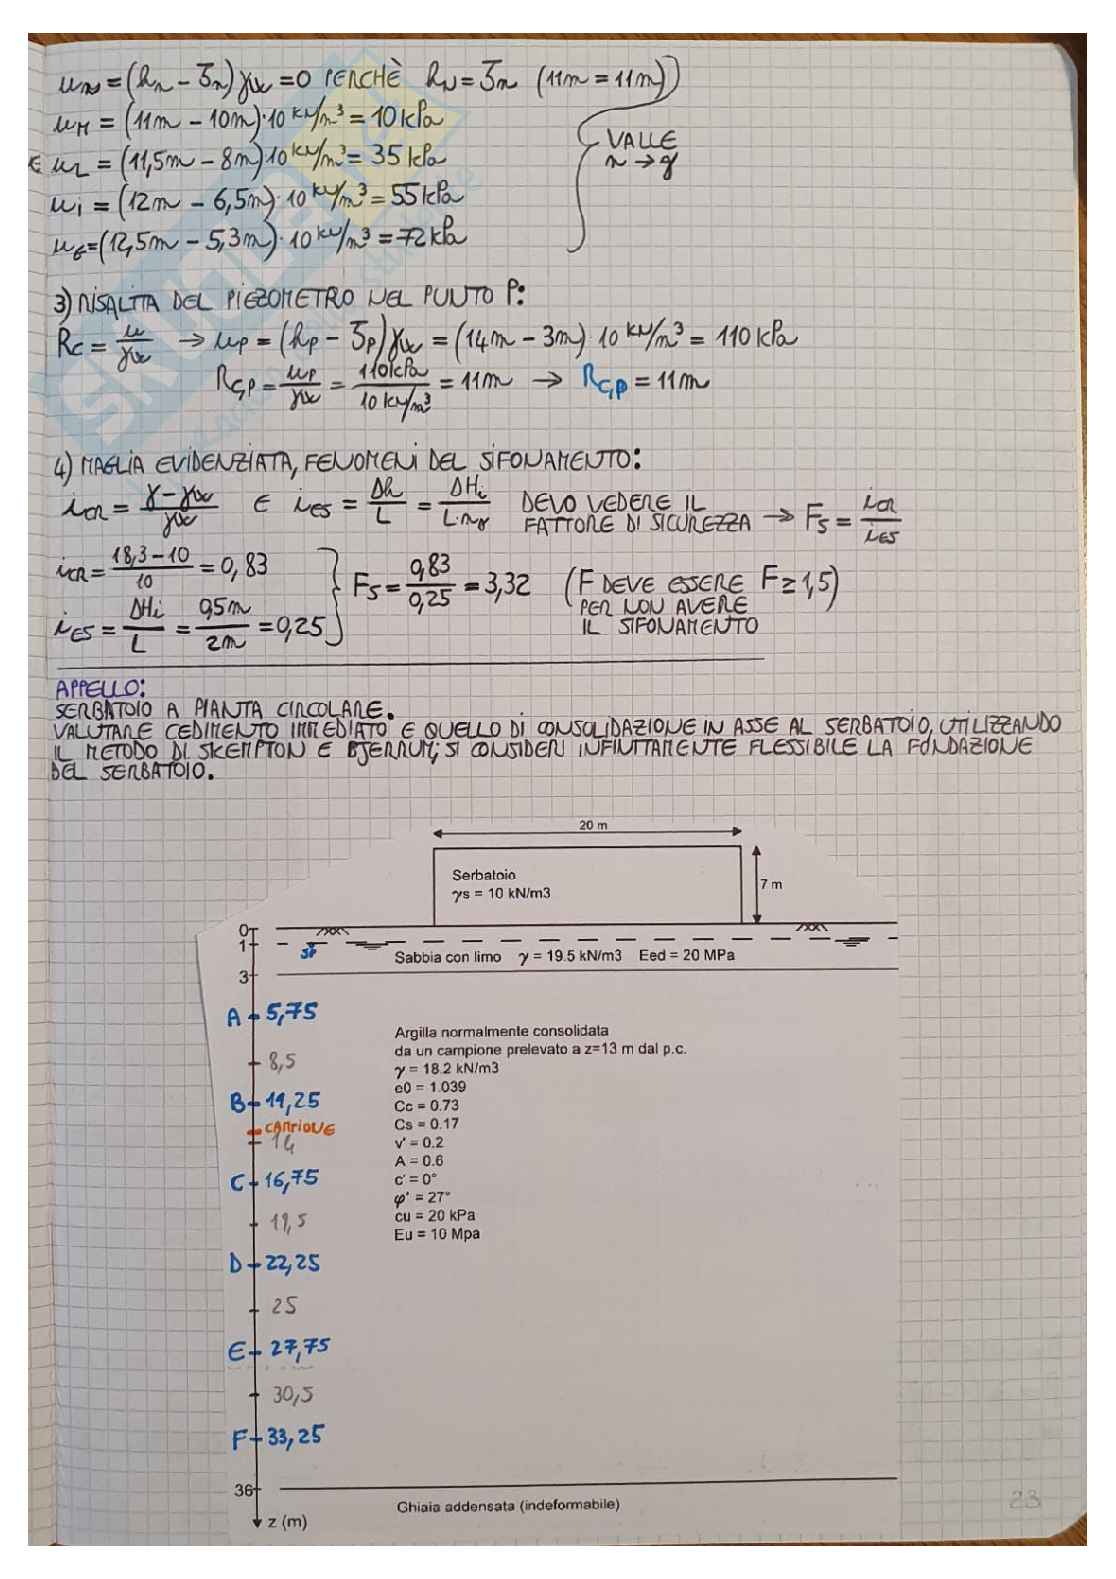 u_N = (h_N - ζ_N) γ_w = 0 PERCHÈ h_N = ζ_N (11m = 11m)
u_M = (11m - 10m)·10 kN/m³ = 10 kPa
u_L = (11,5m - 8m) 10 kN/m³ = 35 kPa
VALLE
n → g
u_i = (12m - 6,5m)· 10 kN/m³ = 55 kPa
u_G = (12,5m - 5,3m)· 10 kN/m³ = 72 kPa
3) RISALITA DEL PIEZOMETRO NEL PUNTO P:
R_C = u/γ_w → u_P = (h_P - ζ_P) γ_w = (14m - 3m) 10 kN/m³ = 110 kPa
R_C,P = u_P/γ_w = 110 kPa/10 kN/m³ = 11m → R_C,P = 11m
4) MAGLIA EVIDENZIATA, FENOMENI DEL SIFONAMENTO:
i_CR = (γ - γ_w)/γ_w E i_ES = Δh/L = ΔH_i/L·n_γ DEVO VEDERE IL FATTORE DI SICUREZZA → F_S = i_CR/i_ES
i_CR = (18,3 - 10)/10 = 0,83
F_S = 0,83/0,25 = 3,32 (F DEVE ESSERE F ≥ 1,5)
PER NON AVERE
IL SIFONAMENTO
i_ES = ΔH_i/L = 0,5m/2m = 0,25
APPELLO:
SERBATOIO A PIANTA CIRCOLARE.
VALUTARE CEDIMENTO IMMEDIATO E QUELLO DI CONSOLIDAZIONE IN ASSE AL SERBATOIO, UTILIZZANDO
IL METODO DI SKEMPTON E BJERRUM; SI CONSIDERI INFINITAMENTE FLESSIBILE LA FONDAZIONE
DEL SERBATOIO.
20 m
Serbatoio
γs = 10 kN/m3
7 m
0
1
Sabbia con limo γ = 19.5 kN/m3 Eed = 20 MPa
3
A 5,75
Argilla normalmente consolidata
da un campione prelevato a z=13 m dal p.c.
8,5
γ = 18.2 kN/m3
e0 = 1.039
B 11,25
Cc = 0.73
Cs = 0.17
CAMPIONE
14
ν' = 0.2
A = 0.6
C 16,75
c' = 0°
φ' = 27°
cu = 20 kPa
19,5
Eu = 10 Mpa
D 22,25
25
E 27,75
30,5
F 33,25
36
Ghiaia addensata (indeformabile)
z (m)
23